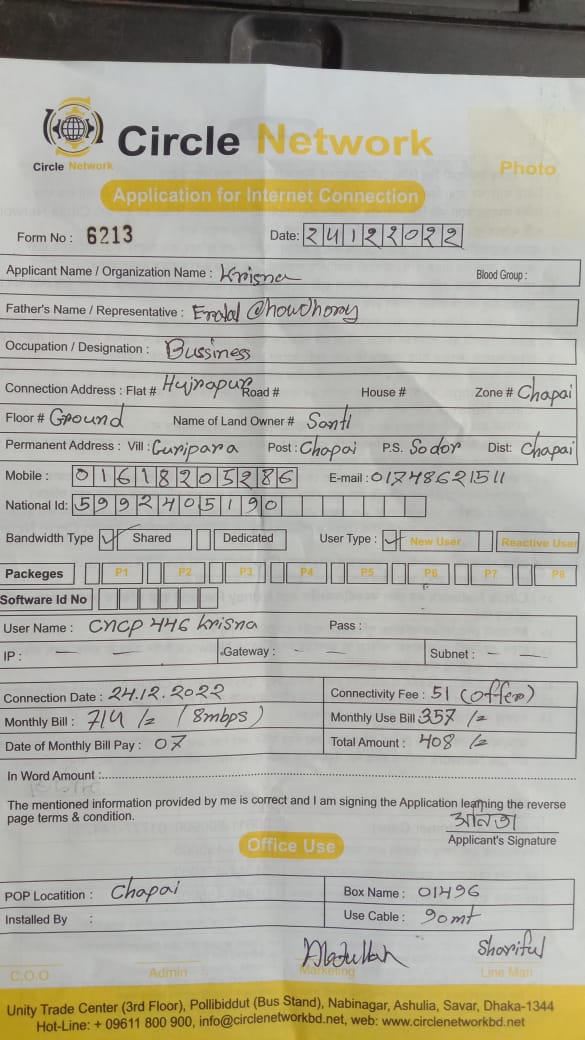 Circle Network
Circle Network
Photo
Application for Internet Connection
Form No : 6213
Date: 24122022
Applicant Name / Organization Name : Krisna
Blood Group :
Father's Name / Representative : Eralal Chowdhory
Occupation / Designation : Bussiness
Connection Address : Flat # Hujrapur Road # House # Zone # Chapai
Floor # Ground Name of Land Owner # Santi
Permanent Address : Vill : Guripara Post : Chapai P.S. Sodor Dist: Chapai
Mobile : 01618205286 E-mail : 01748621511
National Id: 5992405190
Bandwidth Type ✓ Shared Dedicated User Type : ✓ New User Reactive User
Packeges P1 P2 P3 P4 P5 P6 P7 P8
Software Id No
User Name : CNCP 446 Krisna Pass :
IP : — — Gateway : - - Subnet : - —
Connection Date : 24.12.2022 Connectivity Fee : 51 (offer)
Monthly Bill : 714 /= (8mbps) Monthly Use Bill 357 /=
Date of Monthly Bill Pay : 07 Total Amount : 408 /=
In Word Amount :
The mentioned information provided by me is correct and I am signing the Application learning the reverse
page terms & condition.
Applicant's Signature
Office Use
POP Locatition : Chapai Box Name : 01496
Installed By : Use Cable : 90mt
Abdullah Shariful
C.O.O Admin Marketing Line Man
Unity Trade Center (3rd Floor), Pollibiddut (Bus Stand), Nabinagar, Ashulia, Savar, Dhaka-1344
Hot-Line: + 09611 800 900, info@circlenetworkbd.net, web: www.circlenetworkbd.net